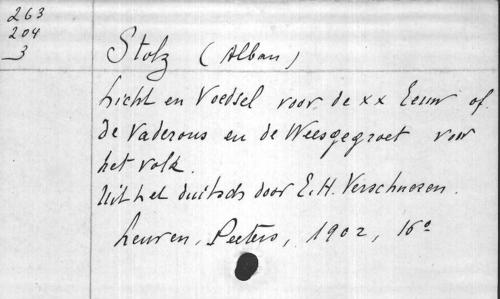 263
204
3
Stolz (Alban)
Licht en Voedsel voor de xx Eeuw of
de Vaderons en de Weesgegroet voor
het volk.
Uit het duitsch door E.H. Verschueren.
Leuven, Peeters, 1902, 16°